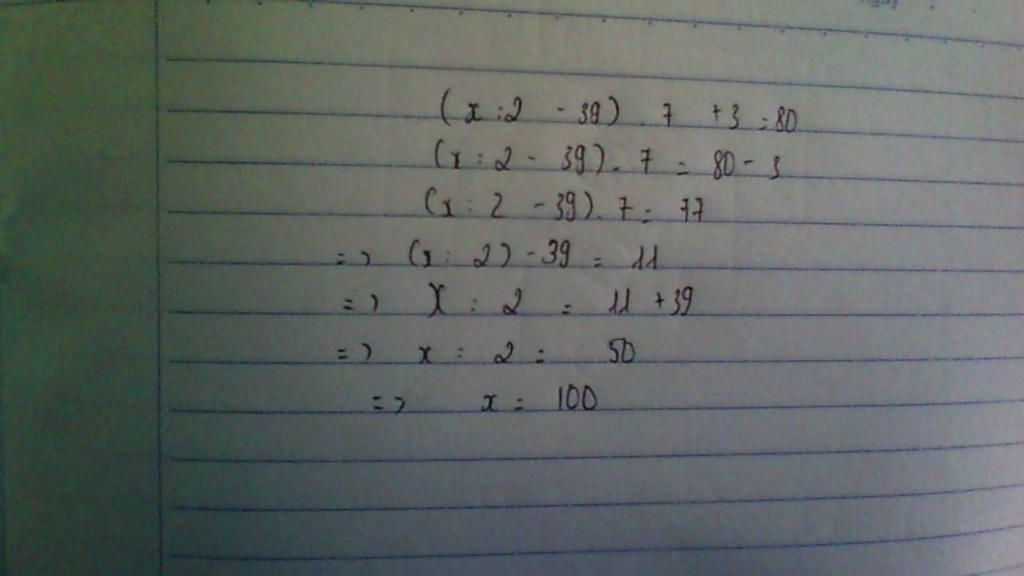 (x : 2 - 39) . 7 + 3 = 80
(x : 2 - 39) . 7 = 80 - 3
(x : 2 - 39) . 7 = 77
=> (x : 2) - 39 = 11
=> X : 2 = 11 + 39
=> x : 2 = 50
=> x = 100